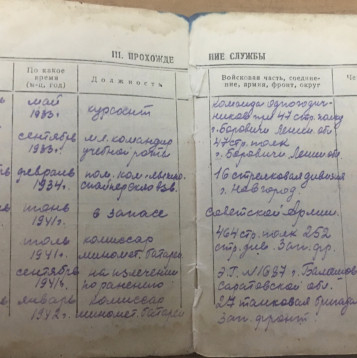 III. ПРОХОЖДЕ НИЕ СЛУЖБЫ
По какое
время
(м-ц, год)
Должность
Войсковая часть, соедине-
ние, армия, фронт, округ
май
1933г.
курсант
команда одногодич-
ников при 47 стр. полк
г. Боровичи Ленин. обл.
сентябрь
1933г.
мл. командир
учебной роты
47 стр. полк
г. Боровичи Ленин. обл.
февраль
1934г.
пом. ком.
взв.
16 стрелковая дивизия
г. Новгород
июнь
1941г.
в запасе
Советской Армии
июль
1941г.
комиссар
миномет. батареи
464 стр. полк 252
стр. див. Зап. фр.
сентябрь
1941г.
на излечении
по ранению
Э.Г. №1687 г. Балашов
Саратовской обл.
январь
1942г.
комиссар
миномет. батареи
27 танковая бригада
Зап. фронт